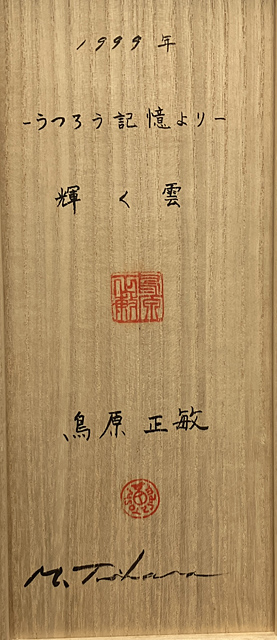 1999年
-うつろう記憶より-
輝く雲
鳥原正敏
M. Torihara